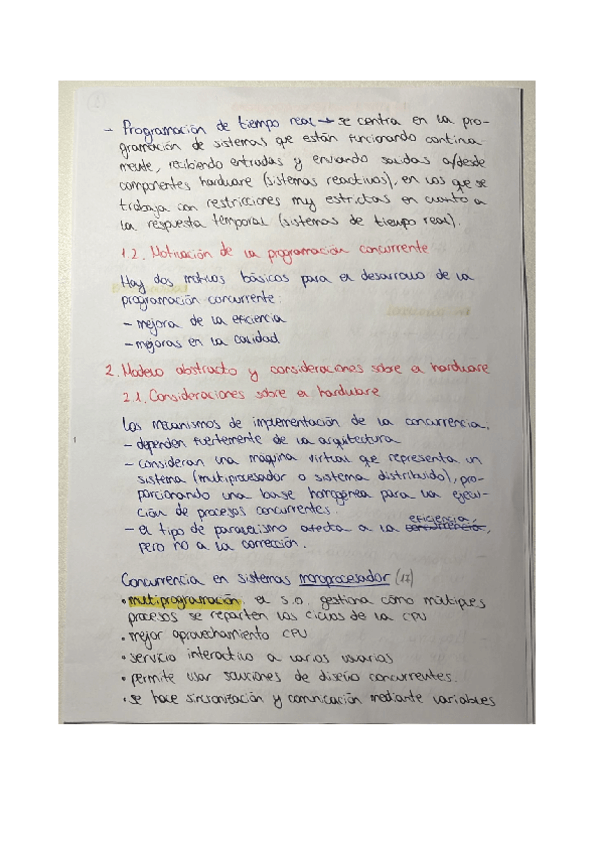 (2)
→ Programación de tiempo real → se centra en la pro-
gramación de sistemas que están funcionando continua
mente, recibiendo entradas y enviando salidas a/desde
componentes hardware (sistemas reactivos), en los que se
trabaja con restricciones muy estrictas en cuanto a
la respuesta temporal (sistemas de tiempo real).
1.2. Motivación de la programación concurrente
Hay dos motivos básicos para el desarrollo de la
programación concurrente:
- mejora de la eficiencia
- mejoras en la calidad
2. Modelo abstracto y consideraciones sobre el hardware
2.1. Consideraciones sobre el hardware
Los mecanismos de implementación de la concurrencia:
- dependen fuertemente de la arquitectura
- consideran una máquina virtual que representa un
sistema (multiprocesador o sistema distribuido), pro-
porcionando una base homogénea para una ejecu-
ción de procesos concurrentes.
- el tipo de paralelismo afecta a la eficiencia,
pero no a la corrección.
Concurrencia en sistemas monoprocesador (17)
• multiprogramación: el s.o. gestiona cómo múltiples
procesos se reparten los ciclos de la CPU
• mejor aprovechamiento CPU
• servicio interactivo a varios usuarios
• permite usar soluciones de diseño concurrentes.
• se hace sincronización y comunicación mediante variables